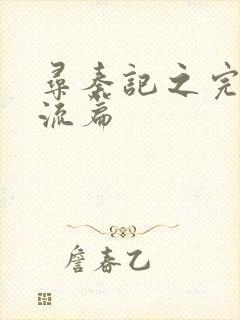 尋秦記之完
流篇
詹春乙